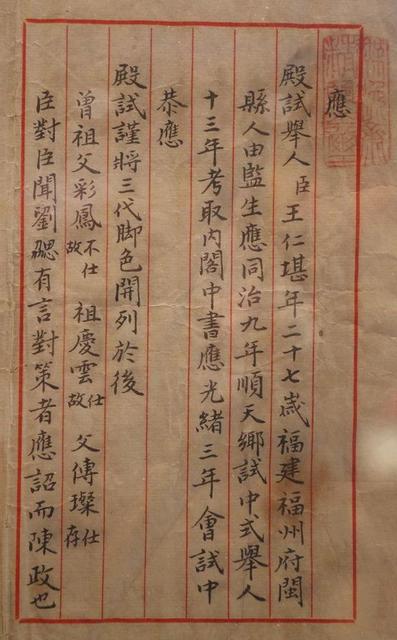 應
殿試舉人臣王仁堪年二十七歲福建福州府閩
縣人由監生應同治九年順天鄉試中式舉人
十三年考取內閣中書應光緒三年會試中
恭應
殿試謹將三代脚色開列於後
曾祖父彩鳳不仕故 祖慶雲仕故 父傳璨仕存
臣對臣聞劉勰有言對策者應詔而陳政也